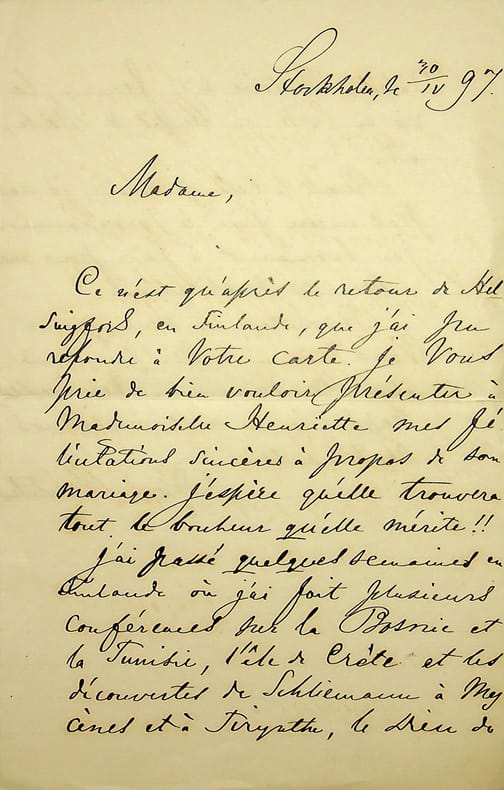 Stockholm, le 30/IV 97.
Madame,
Ce n'est qu'après le retour de Hel
singfors, en Finlande, que j'ai pu
répondre à Votre carte. Je Vous
prie de bien vouloir présenter à
Mademoiselle Henriette mes fé
licitations sincères à propos de son
mariage. J'espère qu'elle trouvera
tout le bonheur qu'elle mérite!!
J'ai passé quelques semaines en
Finlande où j'ai fait plusieurs
conférences sur la Bosnie et
la Tunisie, l'île de Crète et les
découvertes de Schliemann à My
cènes et à Tirynthe, le Dieu du